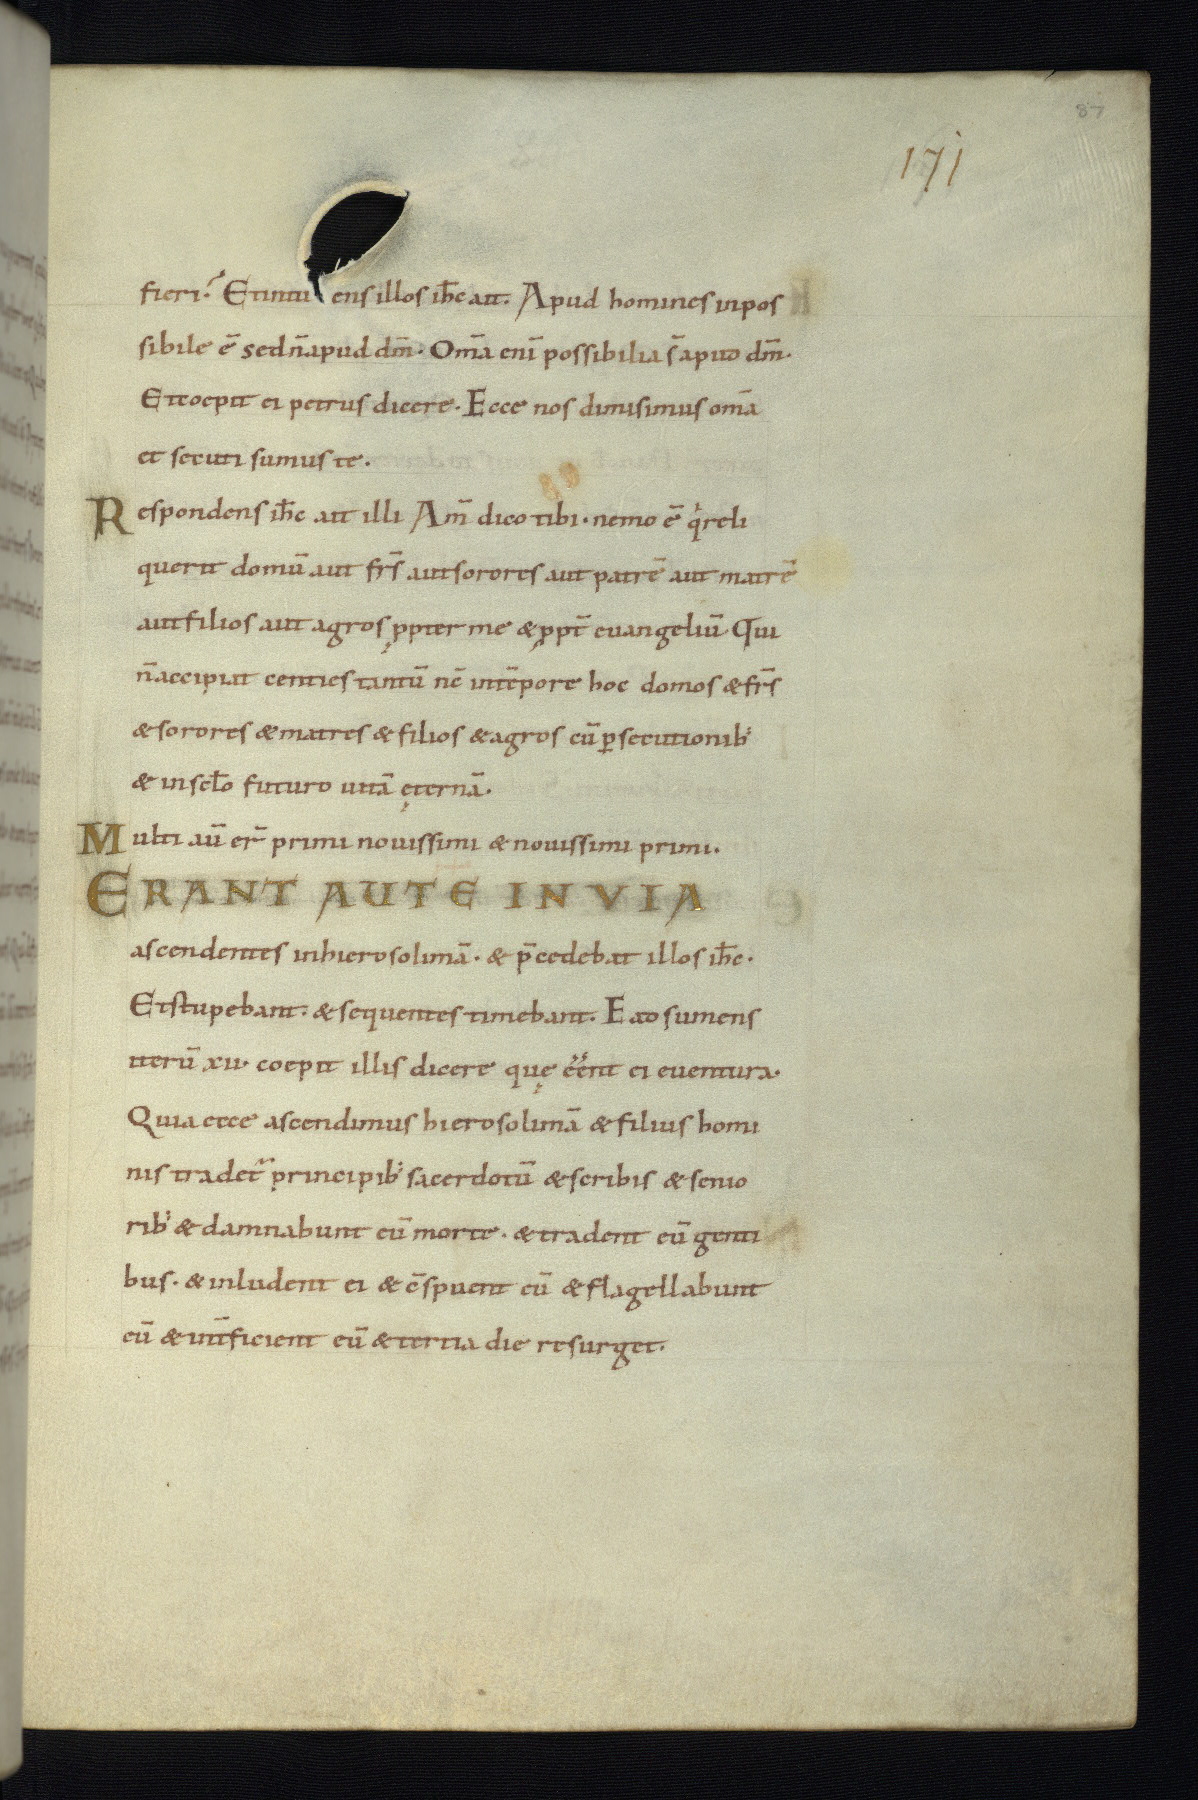 87
171
fieri? Et intu ens illos ih̅c ait. Apud homines inpos
sibile e̅ sed n̅ apud dm̅. Om̅a eni̅ possibilia s̅ apud dm̅.
Et coepit ei petrus dicere. Ecce nos dimisimus om̅a
et secuti sumus te.
Respondens ih̅c ait illi Am̅ dico tibi. nemo e̅ qͥ reli
querit domu̅ aut fr̅s aut sorores aut patre̅ aut matre̅
aut filios aut agros ꝓpter me & ꝓpt̅ euangeliu̅ Qui
n̅ accipiat centies tantu̅ nc̅ in te̅pore hoc domos & fr̅s
& sorores & matres & filios & agros cu̅ ꝑsecutionib;
& in sc̅lo futuro uita̅ ęterna̅.
Multi au̅ er̅ primi nouissimi & nouissimi primi.
ERANT AUTE̅ IN VIA
ascendentes in hierosolima̅. & p̅cedebat illos ih̅c.
Et stupebant. & sequentes timebant. Et ad sumens
iteru̅ xii. coepit illis dicere quę e̅e̅nt ei euentura.
Quia ecce ascendimus hierosolima̅ & filius homi
nis tradet᷑ principib; sacerdotu̅ & scribis & senio
rib; & damnabunt eu̅ morte. & tradent eu̅ genti
bus. & inludent ei & c̅spuent eu̅ & flagellabunt
eu̅ & int̅ficient eu̅ & tertia die resurget.